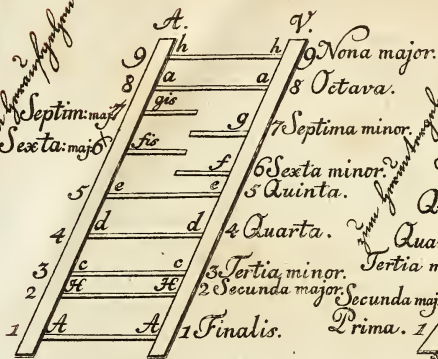 A. V.
9 h h 9 Nona major.
8 a a 8 Octava.
Septim: maj. 7 gis
g 7 Septima minor.
Sexta: maj. 6 fis
f 6 Sexta minor.
5 e e 5 Quinta.
4 d d 4 Quarta.
3 c c 3 Tertia minor.
2 H H 2 Secunda major.
1 A A 1 Finalis.
Qua
Tertia m
Secunda maj
Prima. 1